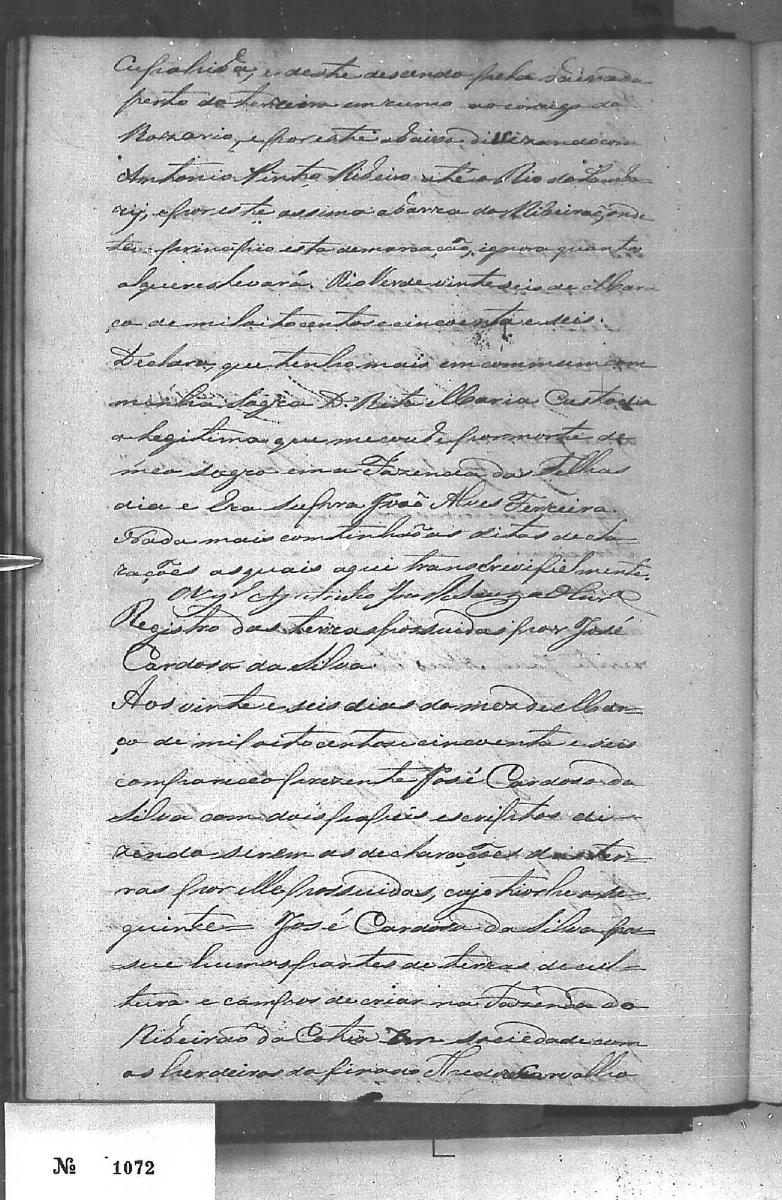 e deste descendo pela
perto da terreira em rumo ao corrigo do
Rozario, e por este abaixo divizando com
Antonio Pinto Ribeiro até o Rio do Lamba
ry, e por este assima a barra do Ribeirão, onde
teu principio esta demarcação, ignora quantos
alqueres levará. Rio Verde vinte seis de Mar-
ço de mil oito centos e cincoenta e seis.
Declaro, que tenho mais em commum com
minha Sogra D. Rita Maria Custodia
a legitima que me coube por morte de
meo sogro em a Fazenda das Ilhas
dia e Era supra João Alves Ferreira.
Nada mais continhão as ditas decla-
rações as quais aqui transcrevi fielmente.
O Vigr.º
Registro das terras possuidas por José
Cardoso da Silva.
Aos vinte e seis dias do mez de Mar-
ço de mil oito centos e cincoenta e seis
compareceo prezente José Cardoso da
Silva com dois papeis escriptos di-
zendo serem as declarações das ter-
ras por elle possuidas, cujo thior he o se-
guinte = José Cardoso da Silva pos-
sue humas partes de terras de cul-
tura e campos de criar na Fazenda do
Ribeirão da Cotia em sociedade com
os herdeiros do finado Carvalho
Nº 1072